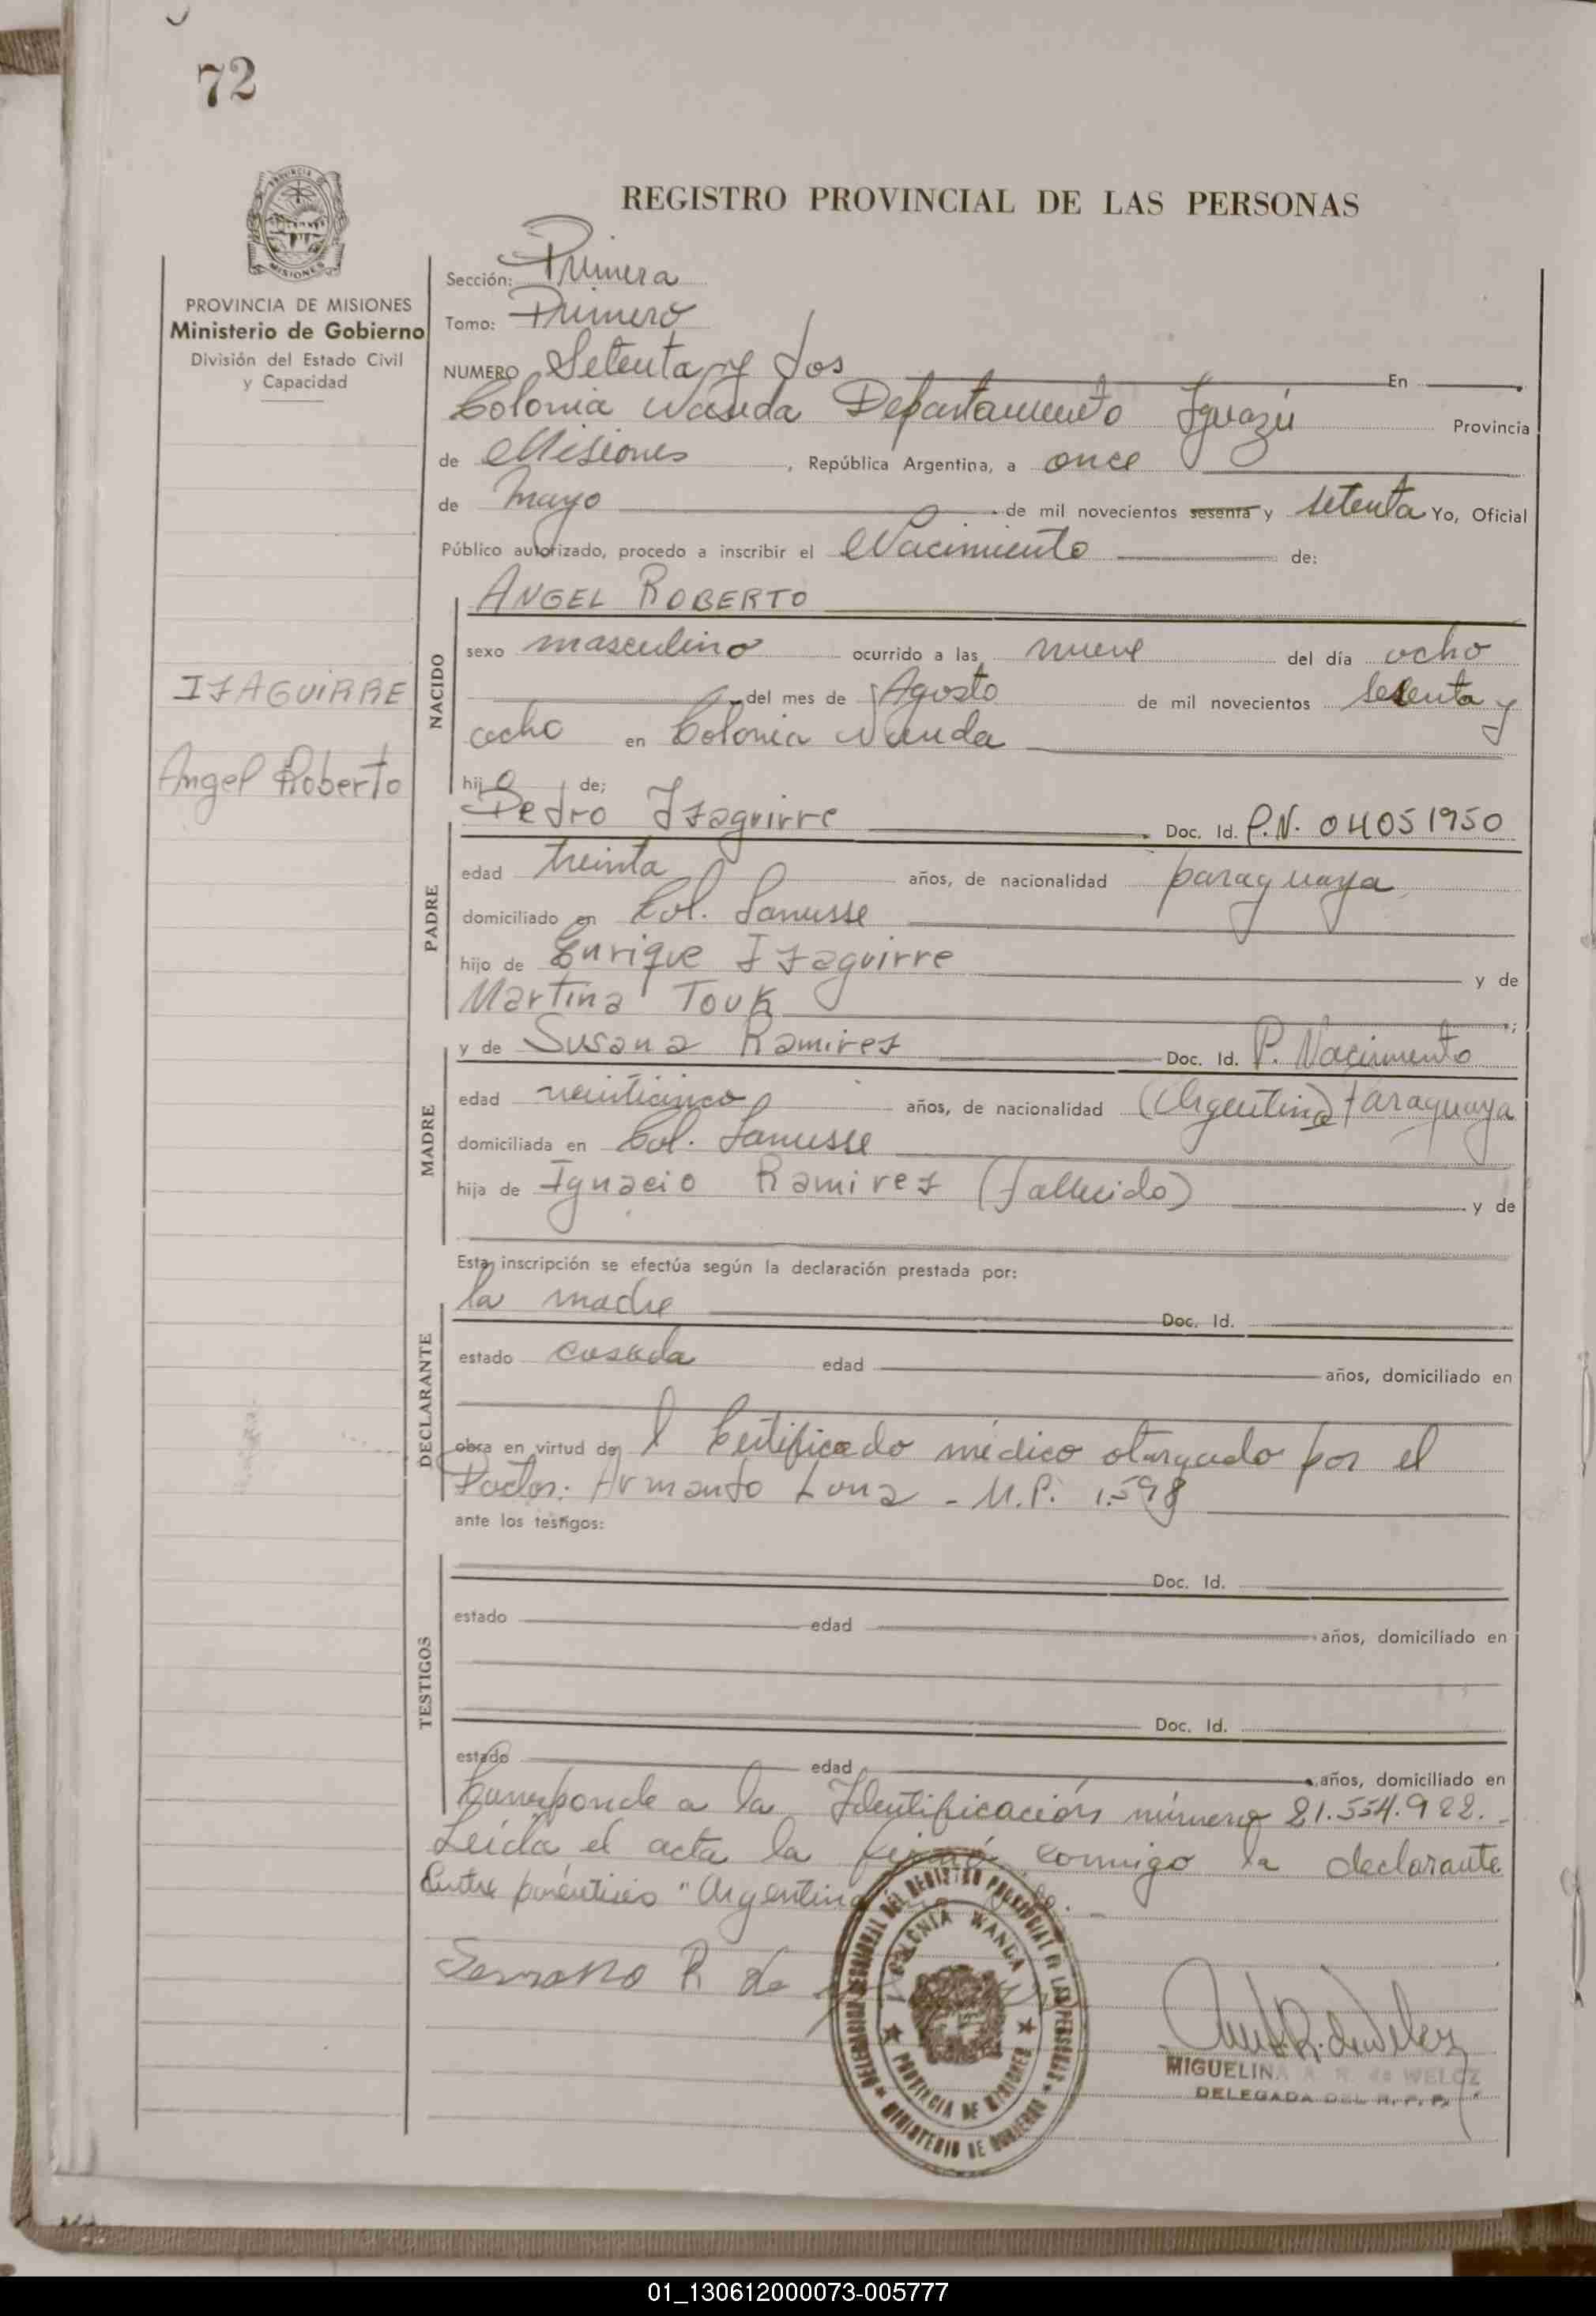 72
REGISTRO PROVINCIAL DE LAS PERSONAS
PROVINCIA DE MISIONES
Ministerio de Gobierno
División del Estado Civil
y Capacidad
Sección: Primera
Tomo: Primero
NUMERO Setenta y dos En
Colonia Wanda Departamento Iguazú Provincia
de Misiones, República Argentina, a once
de Mayo de mil novecientos sesenta y setenta Yo, Oficial
Público autorizado, procedo a inscribir el Nacimiento de:
NACIDO
ANGEL ROBERTO
sexo masculino ocurrido a las nueve del día ocho
del mes de Agosto de mil novecientos sesenta y
ocho en Colonia Wanda
hijo de;
IZAGUIRRE
Angel Roberto
PADRE
Pedro Izaguirre Doc. Id. P.N. 04051950
edad treinta años, de nacionalidad paraguaya
domiciliado en Col. Lanusse
hijo de Enrique Izaguirre y de
Martina Touk
MADRE
y de Susana Ramirez Doc. Id. P. Nacimiento
edad veinticinco años, de nacionalidad (Argentina) Paraguaya
domiciliada en Col. Lanusse
hija de Ignacio Ramirez (fallecido) y de
Esta inscripción se efectúa según la declaración prestada por:
DECLARANTE
la madre Doc. Id.
estado casada edad años, domiciliado en
obra en virtud del Certificado médico otorgado por el
Doctor: Armando Luna - M.P. 1.598
ante los testigos:
TESTIGOS
Doc. Id.
estado edad años, domiciliado en
Doc. Id.
estado edad años, domiciliado en
Corresponde a la Identificación número 21.554.922.
Leída el acta la firmó conmigo la declarante
Entre paréntesis "Argentina
R de
DEL REGISTRO PROVINCIAL DE LAS PERSONAS
COLONIA WANDA
PROVINCIA DE MISIONES
MINISTERIO DE GOBIERNO
MIGUELINA A. R. de WELCZ
DELEGADA DEL R. P. P.
01_130612000073-005777